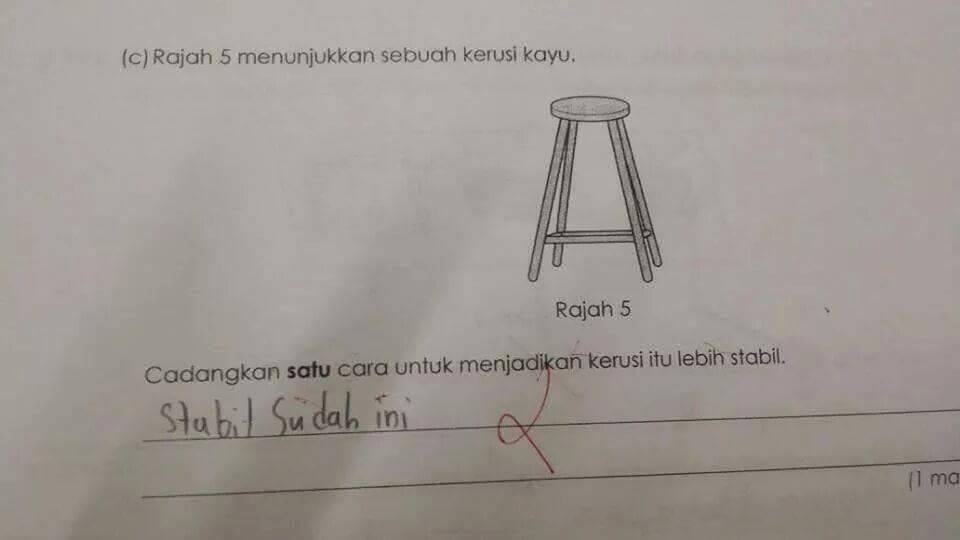 (c) Rajah 5 menunjukkan sebuah kerusi kayu.
Rajah 5
Cadangkan satu cara untuk menjadikan kerusi itu lebih stabil.
Stabil Sudah ini
(1 ma